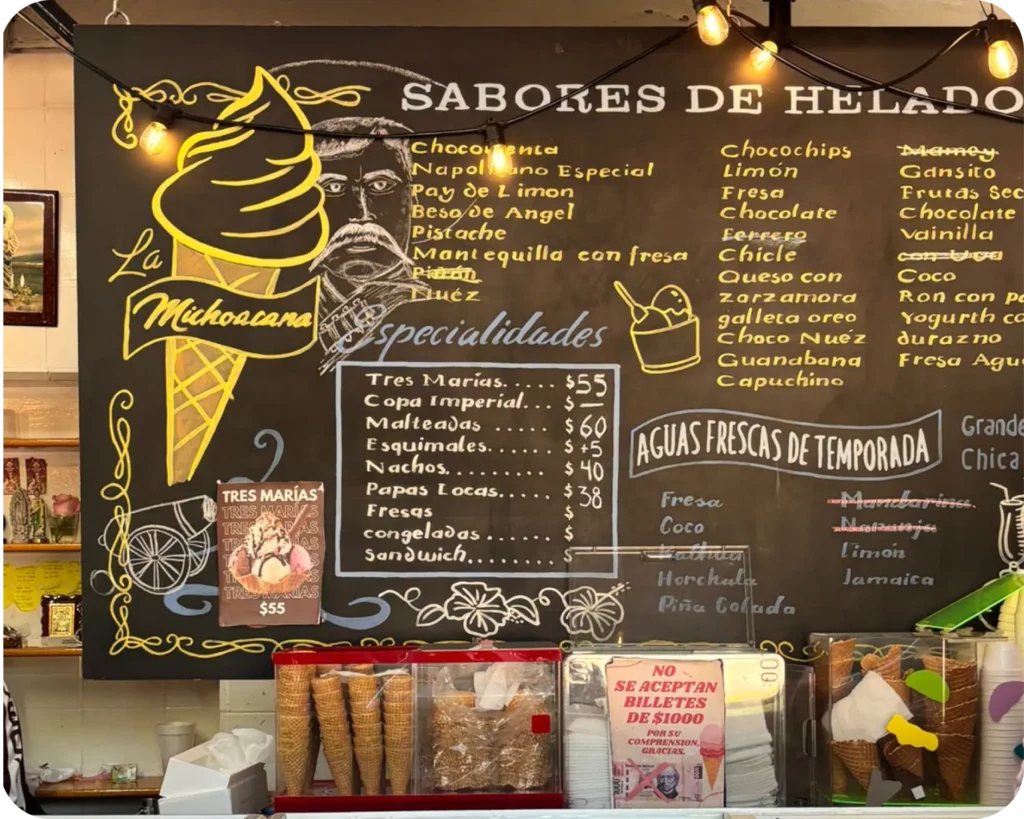 SABORES DE HELADO
Napolitano Especial
Pay de Limon
Beso de Angel
Pistache
Mantequilla con fresa
Piñón
Nuéz
Chocochips
Limón
Fresa
Chocolate
Ferrero
Chicle
Queso con
zarzamora
galleta oreo
Choco Nuéz
Guanabana
Capuchino
Mamey
Gansito
Frutas
Chocolate
Vainilla
Coco
Ron con
Yogurth
durazno
Fresa
La
Michoacana
Especialidades
Tres Marías..... $55
Copa Imperial... $ —
Malteadas ..... $60
Esquimales...... $+5
Nachos......... $40
Papas Locas..... $38
Fresas $
congeladas ...... $
Sandwich........ $
AGUAS FRESCAS DE TEMPORADA
Grande
Chica
Fresa
Coco
Kalhúa
Horchata
Piña Colada
Mandarina
Naranja
Limón
Jamaica
TRES MARÍAS
TRES MARÍAS
TRES MARÍAS
$55
NO
SE ACEPTAN
BILLETES
DE $1000
POR SU
COMPRENSION,
GRACIAS.